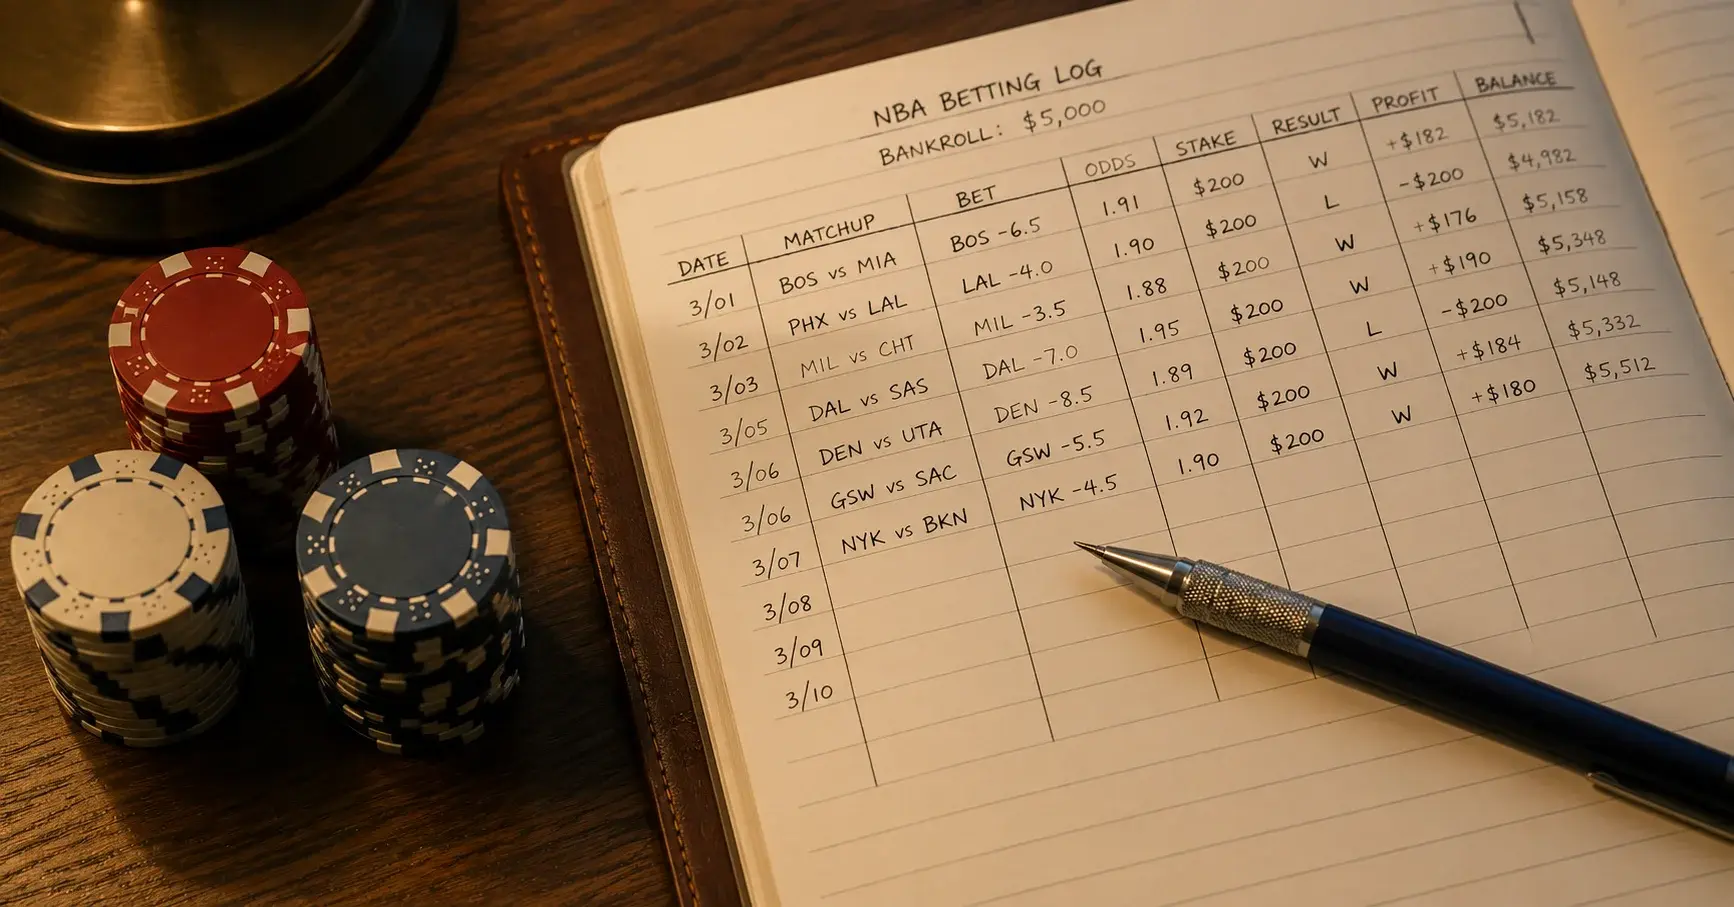 NBA BETTING LOG
BANKROLL: $5,000
DATE MATCHUP BET ODDS STAKE RESULT PROFIT BALANCE
3/01 BOS vs MIA BOS -6.5 1.91 $200 W +$182 $5,182
3/02 PHX vs LAL LAL -4.0 1.90 $200 L -$200 $4,982
3/03 MIL vs CHT MIL -3.5 1.88 $200 W +$176 $5,158
3/05 DAL vs SAS DAL -7.0 1.95 $200 W +$190 $5,348
3/06 DEN vs UTA DEN -8.5 1.89 $200 L -$200 $5,148
3/06 GSW vs SAC GSW -5.5 1.92 $200 W +$184 $5,332
3/07 NYK vs BKN NYK -4.5 1.90 $200 W +$180 $5,512
3/08
3/09
3/10